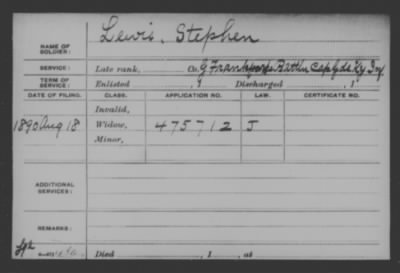 Lewis, Stephen
NAME OF SOLDIER:
SERVICE: Late rank, Co. G Frankfort Battln Ky Inf
TERM OF SERVICE: Enlisted , 1 Discharged , 1
DATE OF FILING. CLASS. APPLICATION NO. LAW. CERTIFICATE NO.
Invalid,
1890 Aug 18 Widow, 475712 J
Minor,
ADDITIONAL SERVICES:
REMARKS:
Died , 1 , at